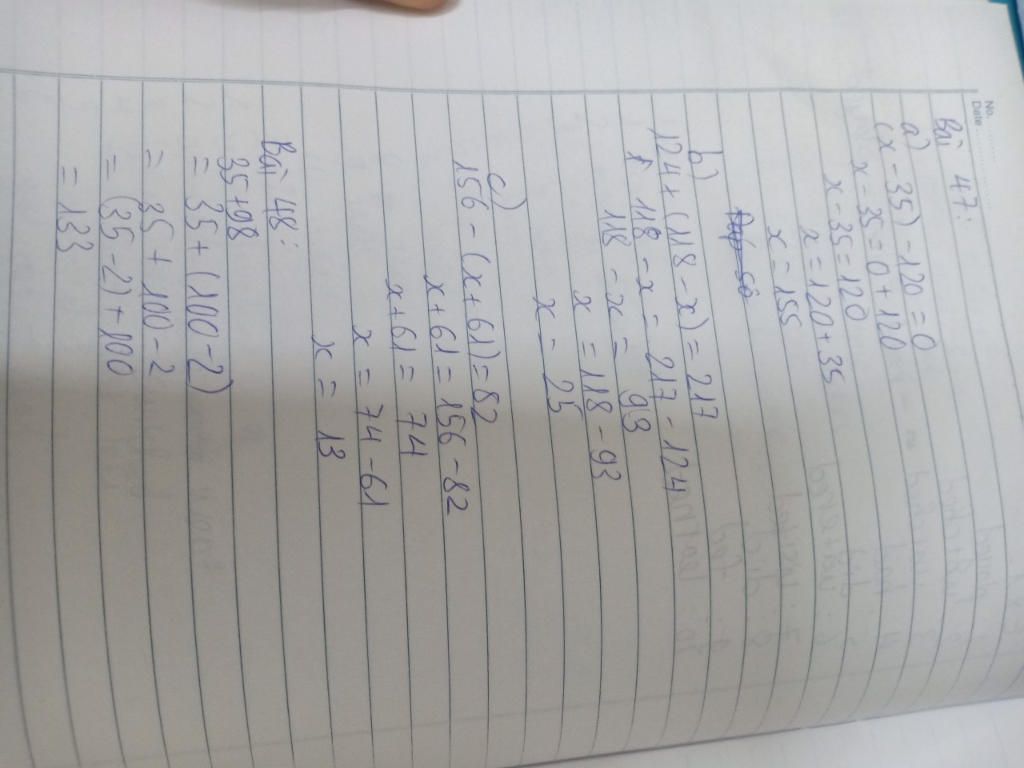 No.
Date
Bài 47:
a)
(x - 35) - 120 = 0
x - 35 = 0 + 120
x - 35 = 120
x = 120 + 35
x = 155
b)
124 + (118 - x) = 217
118 - x = 217 - 124
118 - x = 93
x = 118 - 93
x = 25
c)
156 - (x + 61) = 82
x + 61 = 156 - 82
x + 61 = 74
x = 74 - 61
x = 13
Bài 48:
35 + 98
= 35 + (100 - 2)
= 35 + 100 - 2
= (35 - 2) + 100
= 133